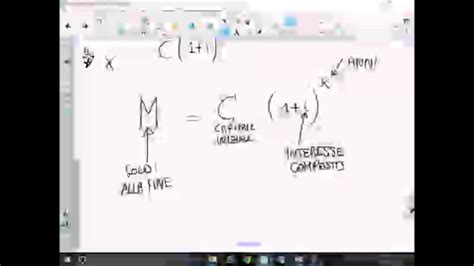 C (1+i)
x
ANNI
M = C (1+i)^x
CAPITALE INIZIALE
INTERESSE COMPOSTO
SOLDI
ALLA FINE